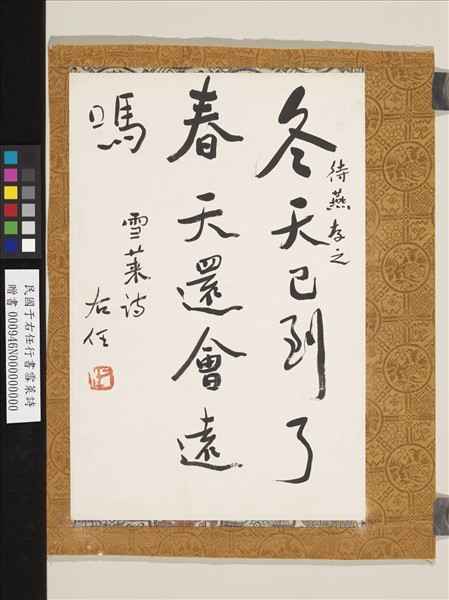 待燕存之
冬天已到了
春天還會遠
嗎
雪萊詩
右任
民國于右任行書雪萊詩
贈書 000946N000000000